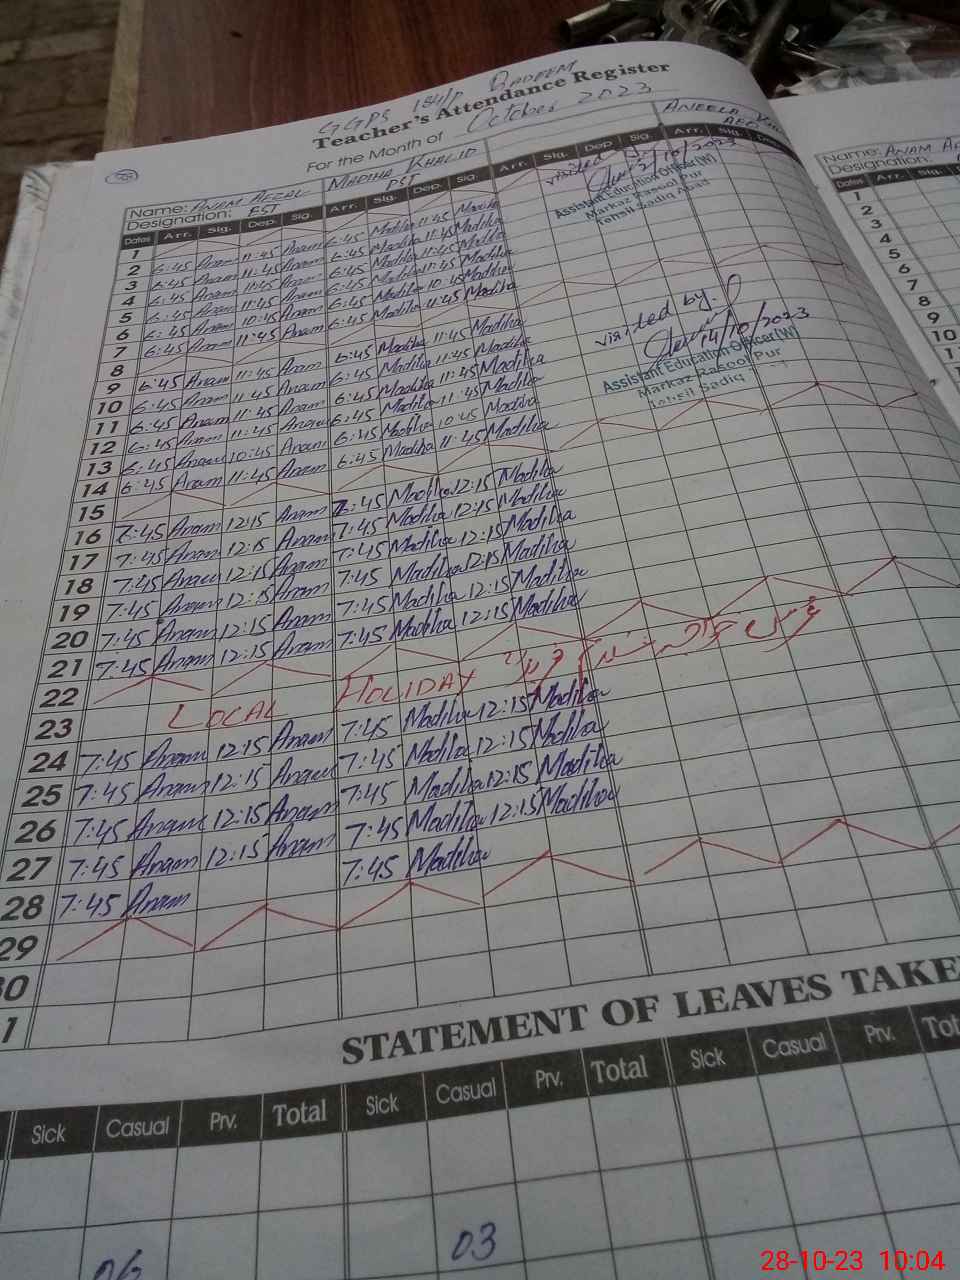 GGPS 184/P QADEEM
Teacher's Attendance Register
For the Month of October 2023
Name: ANAM AFZAL MADIHA KHALID ANEELA
Designation: EST PST
Dates Arr. Sig. Dep. Sig. Arr. Sig. Dep. Sig. Arr. Sig. Dep. Sig. Arr. Sig. Dep.
1
2 6:45 Anam 11:45 Anam 6:45 Madiha 11:45 Madiha
3 6:45 Anam 11:45 Anam 6:45 Madiha 11:45 Madiha
4 6:45 Anam 6:45 Madiha 11:45 Madiha
5 6:45 Anam 11:45 Anam 6:45 Madiha 11:45 Madiha
6 6:45 Anam 10:45 Anam 6:45 Madiha 10:45 Madiha
7 6:45 Anam 11:45 Anam 6:45 Madiha 11:45 Madiha
8
9 6:45 Anam 11:45 Anam 6:45 Madiha 11:45 Madiha
10 6:45 Anam 11:45 Anam 6:45 Madiha 11:45 Madiha
11 6:45 Anam 11:45 Anam 6:45 Madiha 11:45 Madiha
12 6:45 Anam 11:45 Anam 6:45 Madiha 11:45 Madiha
13 6:45 Anam 10:45 Anam 6:45 Madiha 10:45 Madiha
14 6:45 Anam 11:45 Anam 6:45 Madiha 11:45 Madiha
15
16 7:45 Anam 12:15 Anam 7:45 Madiha 12:15 Madiha
17 7:45 Anam 12:15 Anam 7:45 Madiha 12:15 Madiha
18 7:45 Anam 12:15 Anam 7:45 Madiha 12:15 Madiha
19 7:45 Anam 12:15 Anam 7:45 Madiha 12:15 Madiha
20 7:45 Anam 12:15 Anam 7:45 Madiha 12:15 Madiha
21 7:45 Anam 12:15 Anam 7:45 Madiha 12:15 Madiha
22
23 LOCAL HOLIDAY عرس خواجہ غلام فرید
24 7:45 Anam 12:15 Anam 7:45 Madiha 12:15 Madiha
25 7:45 Anam 12:15 Anam 7:45 Madiha 12:15 Madiha
26 7:45 Anam 12:15 Anam 7:45 Madiha 12:15 Madiha
27 7:45 Anam 12:15 Anam 7:45 Madiha 12:15 Madiha
28 7:45 Anam 7:45 Madiha
29
30
1
visited
2/10/2023
Assistant Education Officer (W)
Markaz Rasool Pur
Tehsil Sadiq Abad
visited by.
14/10/2023
Assistant Education Officer (W)
Markaz Rasool Pur
Tehsil Sadiq
STATEMENT OF LEAVES TAKE
Sick Casual Prv. Total Sick Casual Prv. Total Sick Casual Prv. Tot
06 03
Name: ANAM
Designation:
Dates Arr. Sig.
1
2
3
4
5
6
7
8
9
10
28-10-23 10:04